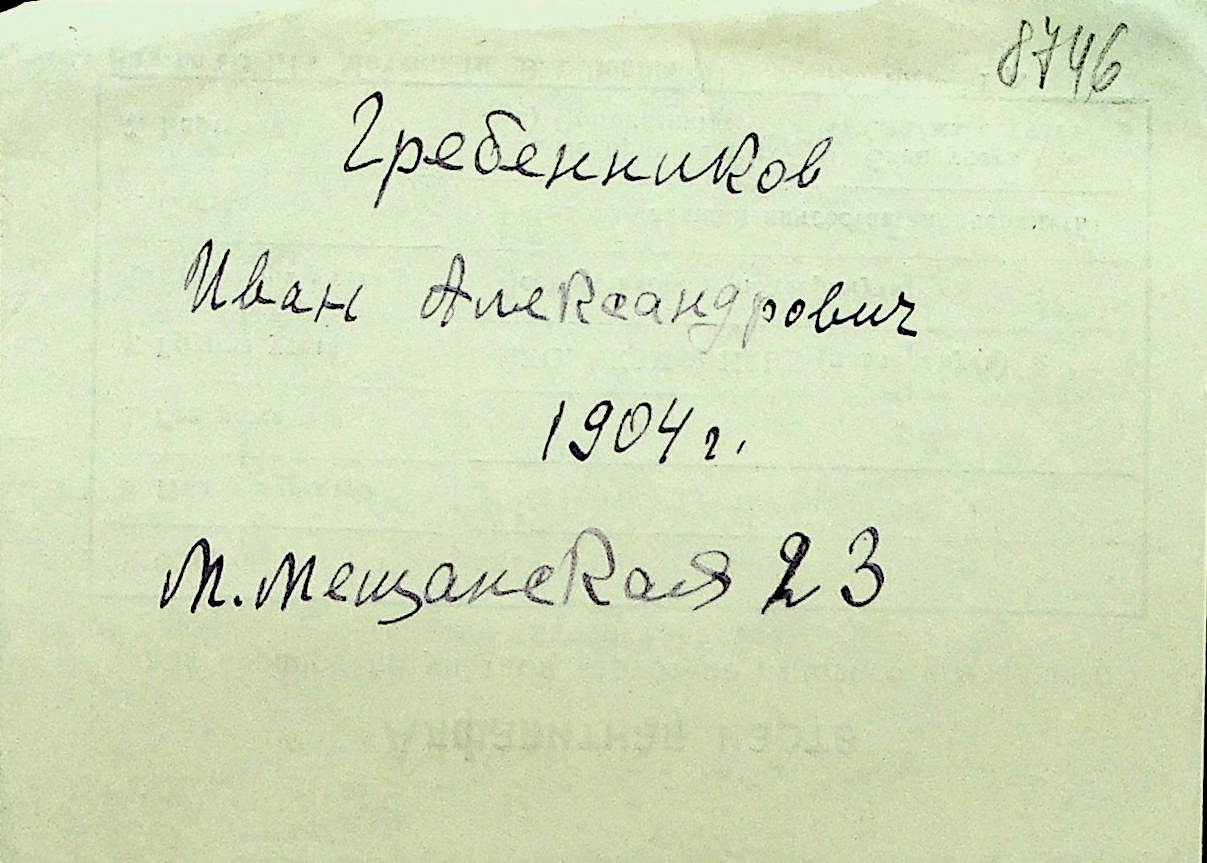 8746
Гребенников
Иван Александрович
1904 г.
М. Мещанская 23